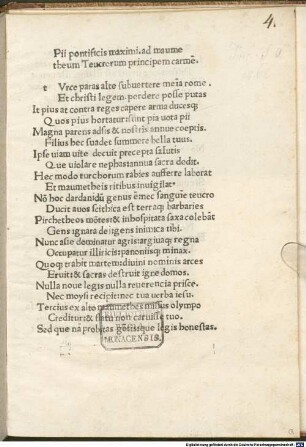 4.
Pii pontificis maximi. ad maume
theum Teucrerum principem carmē.
t Vrce paras alto subuertere mēia rome.
Et christi legem. perdere posse putas
It pius at contra reges capere arma ducesq;
Quos pius hortatur sunt pia uota pii
Magna parens adsis & nostris annue coeptis.
Filius hec suadet summere bella tuus.
Ipse uiam uite docuit precepta salutis
Que uiolare nephas iannua sacra dedit.
Hec modo turchorum rabies aufferre laborat
Et maumetheis ritibus inuigilat.
Nō hoc dardanidū genus ē nec sanguie teucro
Ducit auos scithica est terraq; barbaries
Pircheteos mōtes: & inhospitata saxa colebāt
Gens ignara dei gens inimica tibi.
Nunc asie dominatur agris: argiuaq; regna
Occupat illiricis panoniisq; minax.
Quoq; trahit martem diuini nominis arces
Eruit & sacras destruit igne domos.
Nulla noue legis nulla reuerencia prisce.
Nec moysi recipit nec tua uerba iesu.
Tercius ex alto maumethes missus olympo
Creditur: & flatu non caruisse tuo.
Sed que nā probitas gētisque legis honestas.
MONACENSIS.